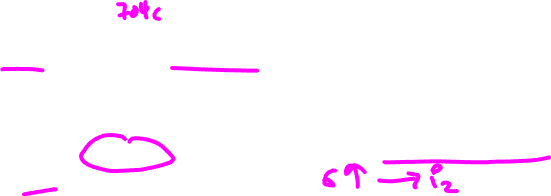 704c
6↑ → i2